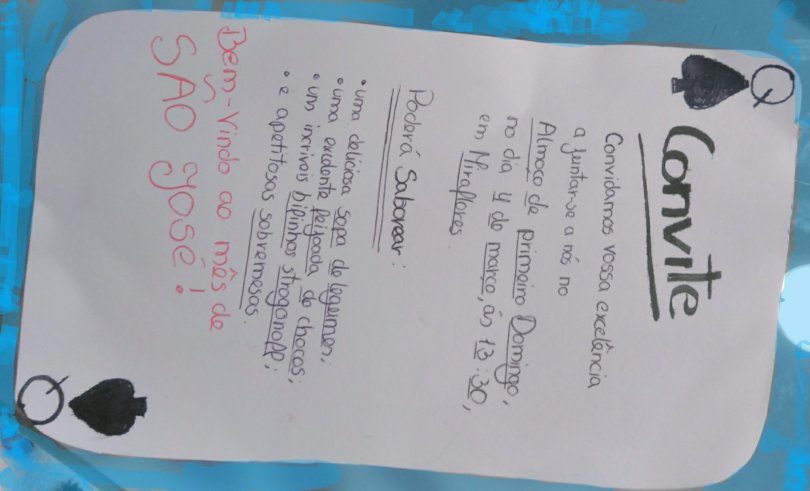 Q
Convite
Convidamos vossa excelância
a juntar-se a nós no
Almoço de primeiro Domingo,
no dia 4 de março, às 13:30,
em Miraflores.
Poderá Saborear:
• uma deliciosa sopa de legumes;
• uma excelente feijoada de chocos;
• um incrivois bifinhos stroganoff;
• e apetitosas sobremesas.
Bem-Vindo ao mês de
SÃO JOSÉ!
Q